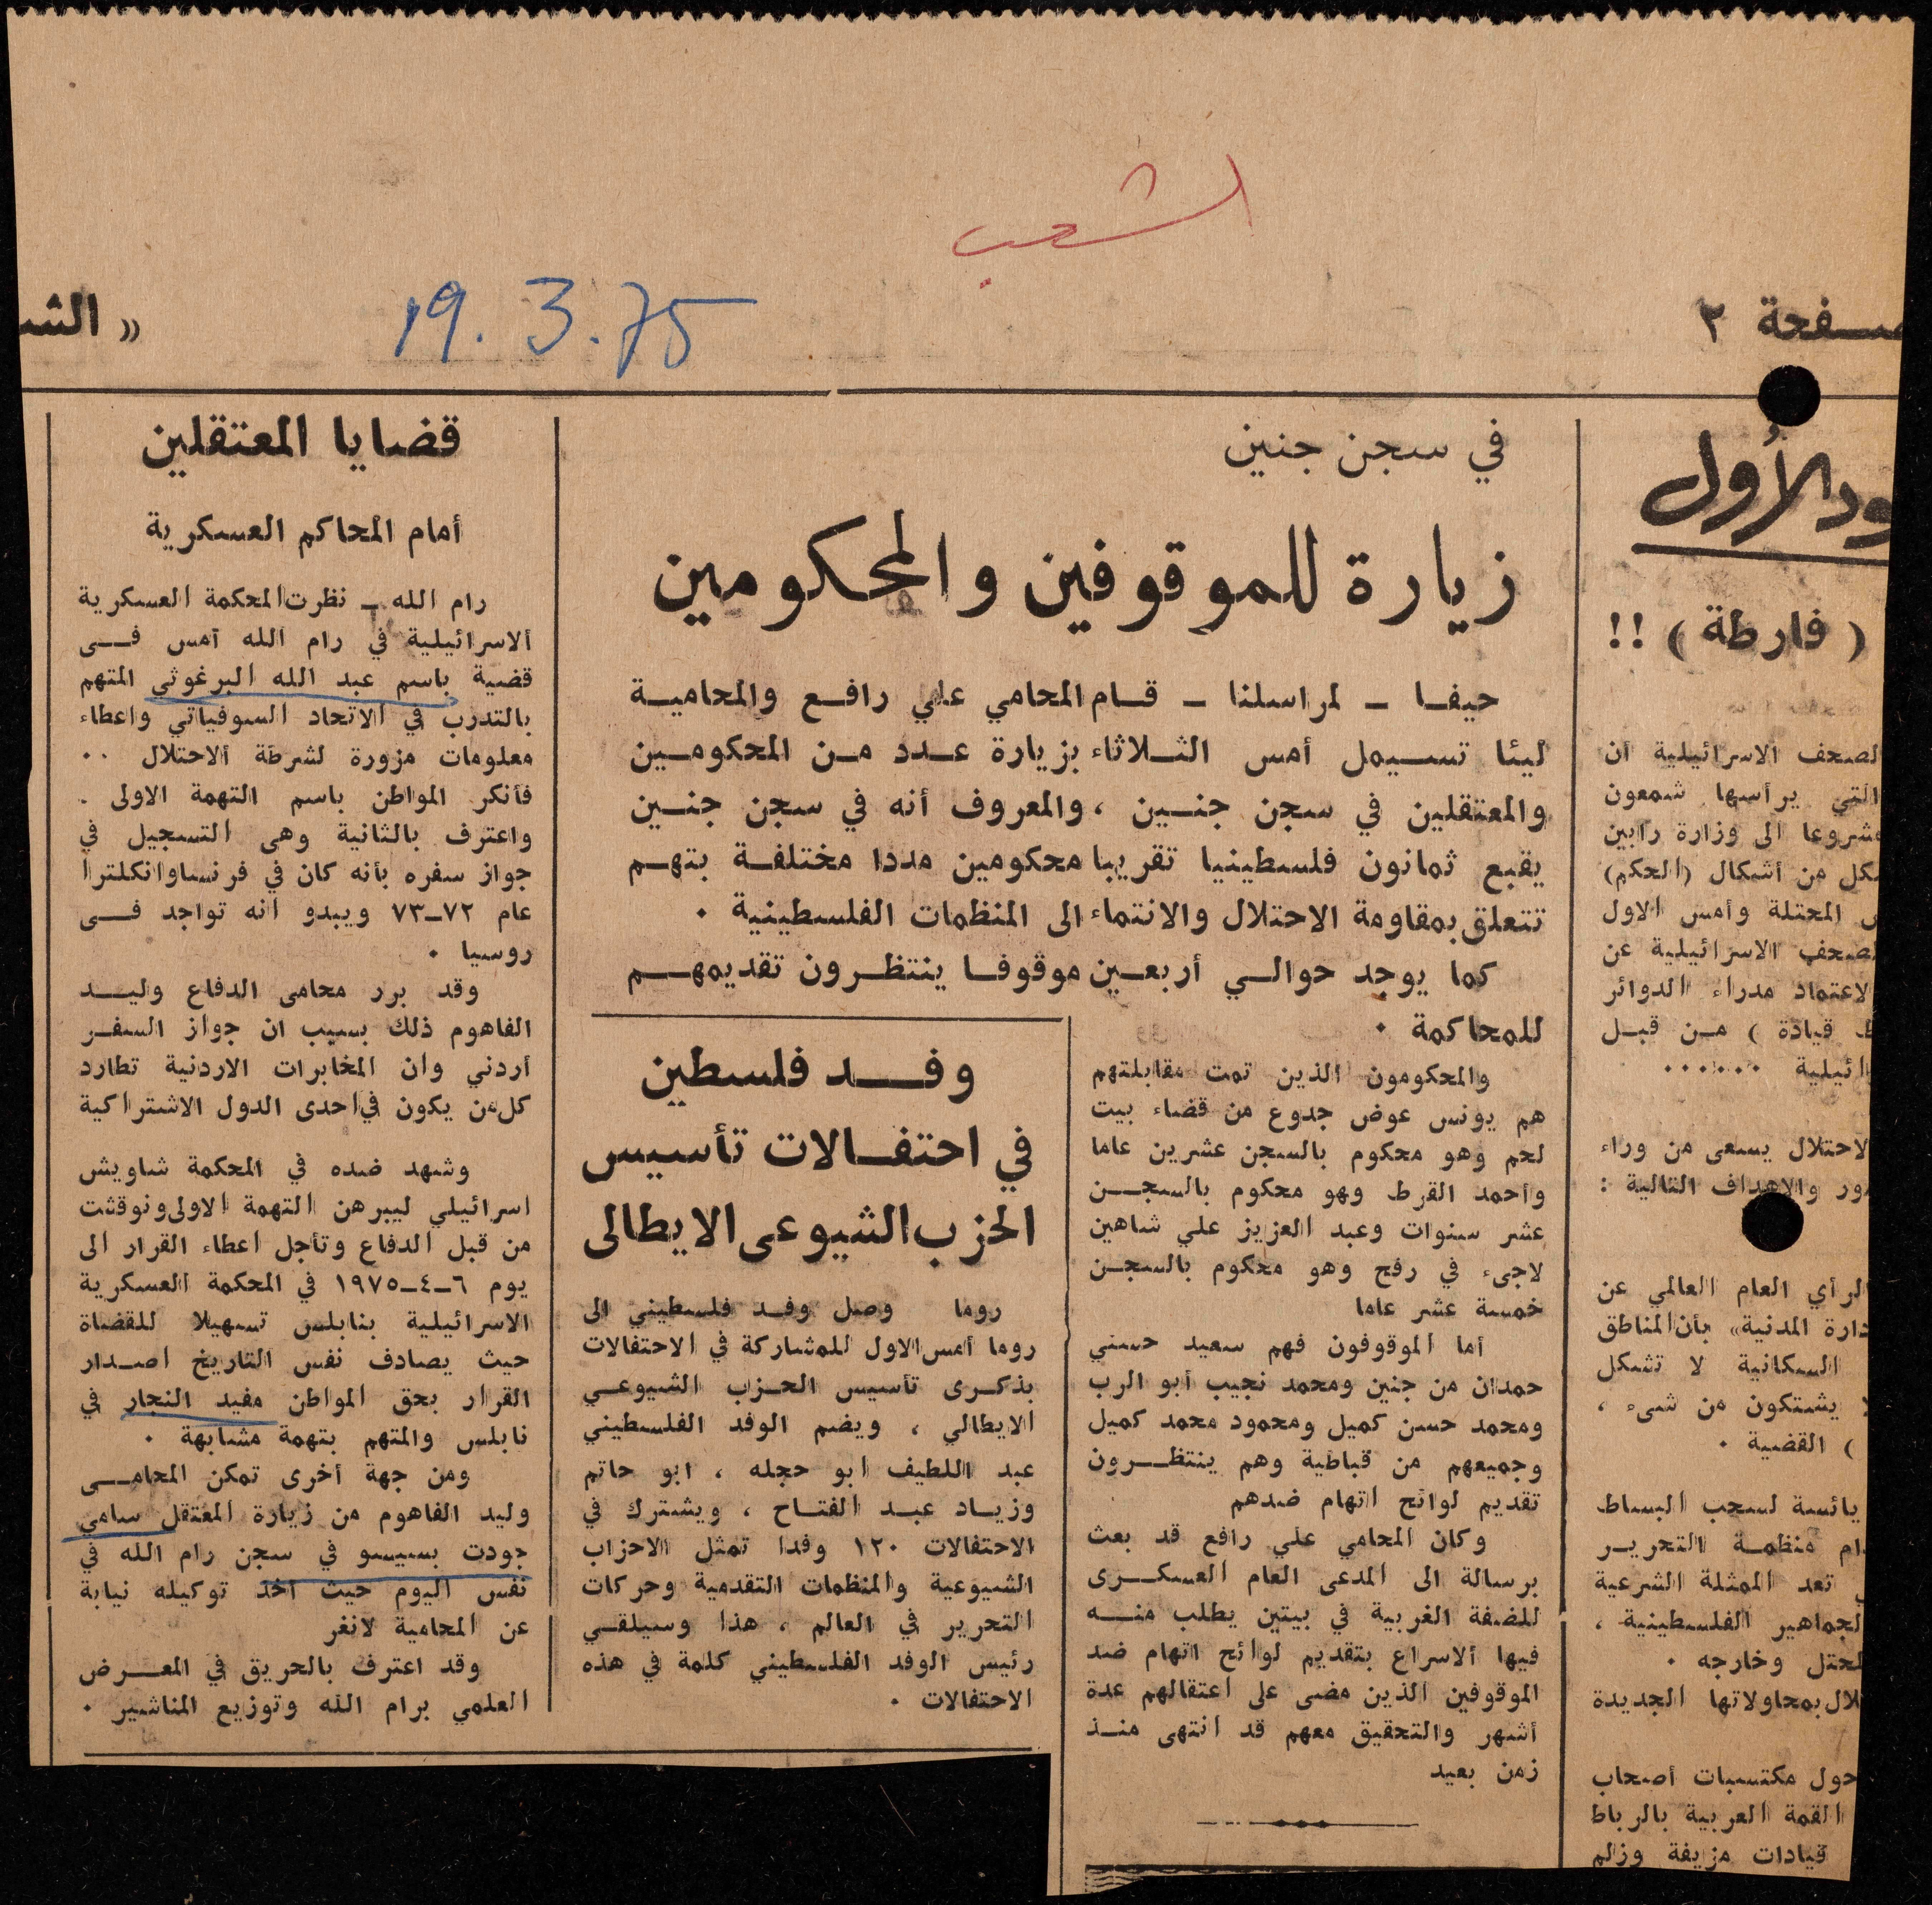 الشعب
صفحة ٢
19.3.75
« الش
ود الأول
( فارطة ) !!
لصحف الاسرائيلية ان
التي يرأسها شمعون
مشروعا الى وزارة رابين
كل من أشكال (الحكم)
المحتلة وأمس الاول
لصحف الاسرائيلية عن
لاعتماد مدراء الدوائر
ط قيادة ) مـن قبـل
رائيلية ٠٠٠٠٠٠
لاحتلال يسعى من وراء
ور والاهداف التالية :
لرأي العام العالمي عن
دارة المدنية» بأن المناطق
السكانية لا تشكل
يشتكون من شىء ،
) القضية ٠
يائسة لسحب البساط
ام منظمـة التحريـر
تعد الممثلة الشرعية
لجماهير الفلسطينية ،
لمحتل وخارجه ٠
لال بمحاولاتها الجديدة
حول مكتسبات أصحاب
القمة العربية بالرباط
قيادات مزيفة وزلم
في سجن جنين
زيارة للموقوفين والمحكومين
حيفـا ـ لمراسلنا ـ قـام المحامي علي رافـع والمحاميـة
ليئا تسـيمل أمس الثـلاثاء بزيارة عـدد مـن المحكومـين
والمعتقلين في سجن جنـين ، والمعروف أنه في سجن جنـين
يقبع ثمانون فلسطينيا تقريبا محكومين مددا مختلفـة بتهـم
تتعلق بمقاومة الاحتلال والانتماء الى المنظمات الفلسطينية ٠
كما يوجد حوالـي أربعـين موقوفـا ينتظـرون تقديمهـم
للمحاكمة ٠
والمحكومون الذين تمت مقابلتهم
هم يونس عوض جدوع من قضاء بيت
لحم وهو محكوم بالسجن عشرين عاما
وأحمد القرط وهو محكوم بالسجـن
عشر سنوات وعبد العزيز علي شاهين
لاجىء في رفح وهو محكوم بالسجـن
خمسة عشر عاما
أما الموقوفون فهم سعيد حسني
حمدان من جنين ومحمد نجيب أبو الرب
ومحمد حسن كميل ومحمود محمد كميل
وجميعهم من قباطية وهم ينتظـرون
تقديم لوائح اتهام ضدهم
وكان المحامي علي رافع قد بعث
برسالة الى المدعى العام العسكـرى
للضفة الغربية في بيتين يطلب منـه
فيها الاسراع بتقديم لوائح اتهام ضد
الموقوفين الذين مضى على اعتقالهم عدة
أشهر والتحقيق معهم قد انتهى منـذ
زمن بعيد
وفـد فلسطين
في احتفـالات تأسيس
الحزب الشيوعى الايطالى
روما وصل وفـد فلسطيني الى
روما أمس الاول للمشاركة في الاحتفالات
بذكـرى تأسيس الحـزب الشيوعـي
الايطالي ، ويضم الوفد الفلسطيني
عبد اللطيف ابو حجله ، ابو حاتم
وزيـاد عبـد الفتـاح ، ويشترك في
الاحتفالات ١٢٠ وفدا تمثل الاحزاب
الشيوعية والمنظمات التقدمية وحركات
التحرير في العالم ، هذا وسيلقـي
رئيس الوفد الفلسطيني كلمة في هذه
الاحتفالات ٠
قضايا المعتقلين
أمام المحاكم العسكرية
رام الله ـ نظرت المحكمة العسكرية
الاسرائيلية في رام الله أمس فـي
قضية باسم عبد الله البرغوثي المتهم
بالتدرب في الاتحاد السوفياتي واعطاء
معلومات مزورة لشرطة الاحتلال ٠٠
فأنكر المواطن باسم التهمة الاولى ٠
واعترف بالثانية وهى التسجيل في
جواز سفره بأنه كان في فرنسا وانكلترا
عام ٧٢ـ٧٣ ويبدو انه تواجد فـى
روسيا ٠
وقد برر محامى الدفاع وليـد
الفاهوم ذلك بسبب ان جواز السفـر
أردني وان المخابرات الاردنية تطارد
كل من يكون في احدى الدول الاشتراكية
وشهد ضده في المحكمة شاويش
اسرائيلي ليبرهن التهمة الاولى ونوقشت
من قبل الدفاع وتأجل اعطاء القرار الى
يوم ٦ـ٤ـ١٩٧٥ في المحكمة العسكرية
الاسرائيلية بنابلس تسهيلا للقضاة
حيث يصادف نفس التاريخ اصـدار
القرار بحق المواطن مفيد النجار في
نابلس والمتهم بتهمة مشابهة ٠
ومن جهة أخرى تمكن المحامـى
وليد الفاهوم من زيارة المعتقل سامي
جودت بسيسو في سجن رام الله في
نفس اليوم حيث أخذ توكيله نيابة
عن المحامية لانغر
وقد اعترف بالحريق في المعـرض
العلمي برام الله وتوزيع المناشير ٠